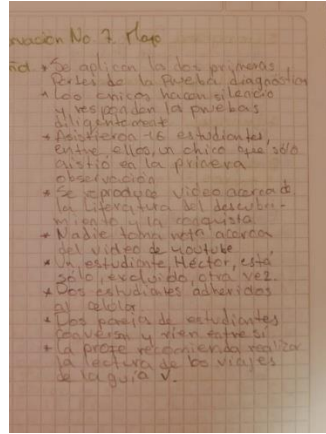 vación No 7 Mayo
* Se aplican las dos primeras
Partes de la Prueba diagnostica
* Los chicos hacen silencio
y responden la pruebas
diligentemente
* Asistieron 16 estudiantes,
entre ellos, un chico que sólo
asistió en la primera
observación
* Se reproduce video acerca de
la literatura del descubri-
miento y la conquista
* Nadie toma nota acerca
del video de youtube
* Un estudiante, Héctor, está
sólo, excluido, otra vez.
* Dos estudiantes adheridos
al celular
* Dos parejas de estudiantes
conversan y ríen entre sí
* La profe recomienda realizar
la lectura de los viajes
de la guía V.